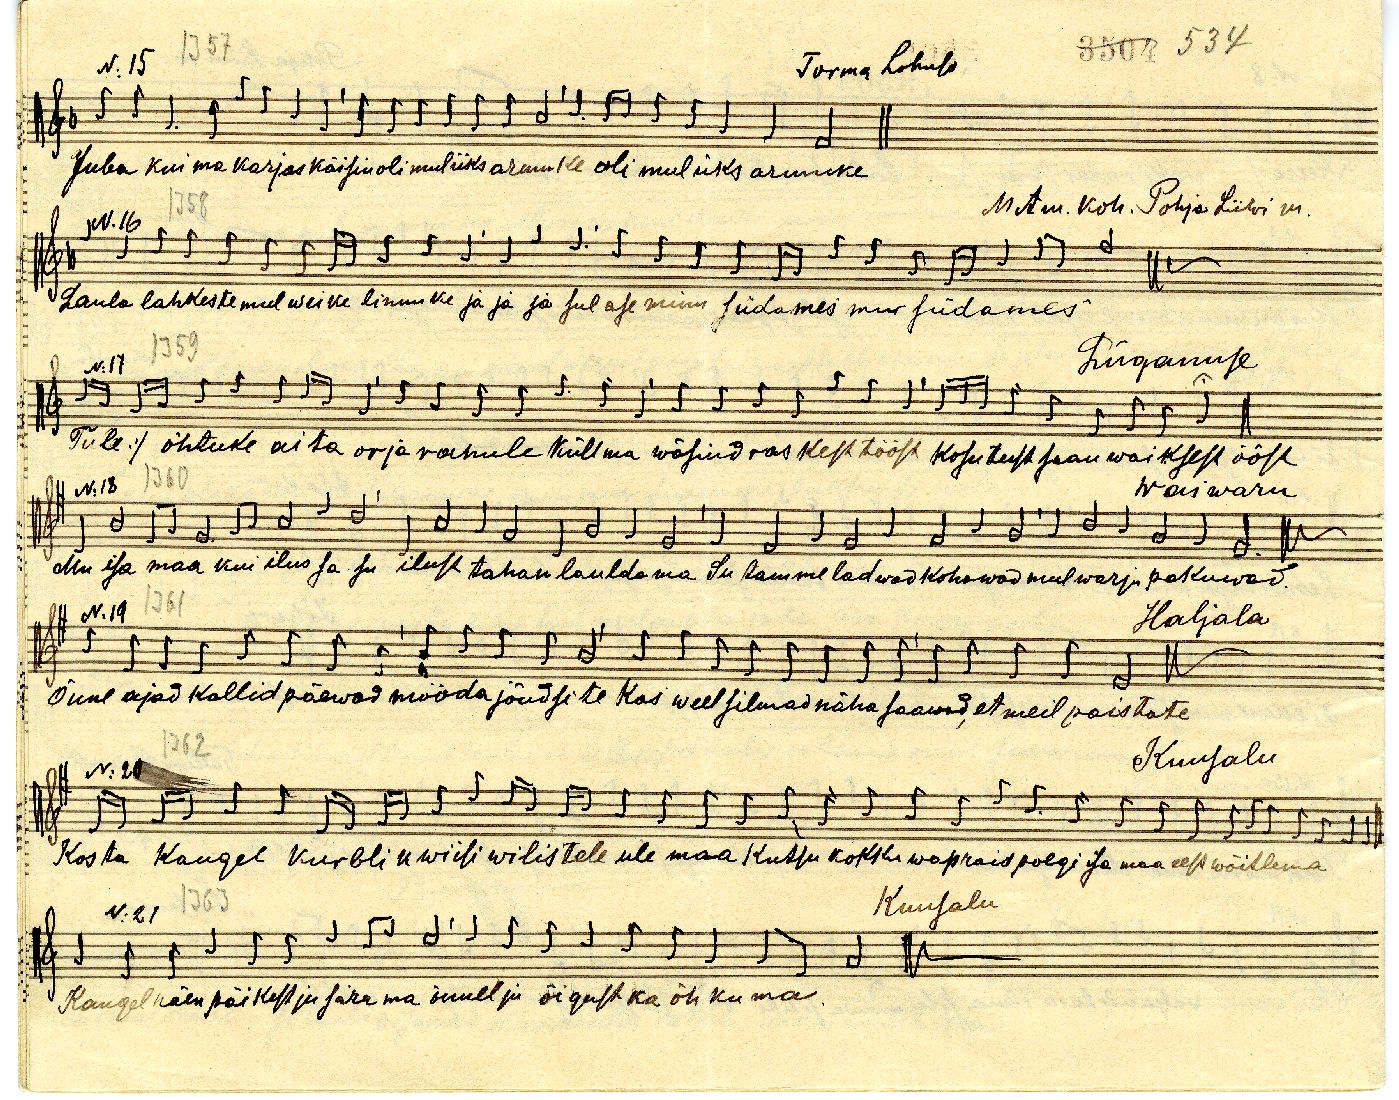 N: 15 1357 Torma Lohusu 3504 534
Juba kui ma karjas käisin oli mul üks armuke oli mul üks armuke
N. 16 1358 M Am. Koh. Pohja Liiwi m.
Laula lahkeste mul weike linnuke ja ja ja sulase minu südames mur südames
N: 17 1359 Lüganuse
Tule :/ öhtuke ai ta orja rahule Küll ma wäsind raskest tööst Kosutust saan waiksest ööst
N: 18 1360 Waiwaru
Mu isa maa kui ilus sa su ilust tahan lauldama Su tamme ladwad kohawad mul warju pakuwad.
N. 19 1361 Haljala
Önne ajad kallid päewad mööda jöudsite Kas weel silmad näha saawad, et meil paistate
N: 20 1362 Kuusalu
Kosta Kangel kurbliku wiisi wilistele ule maa Kutsu kokku waprais poegi isa maa eest wöitlema
N: 21 1363 Kuusalu
Kaugel näen päikest ju sära ma önnell ju öigust ka öhkuma.